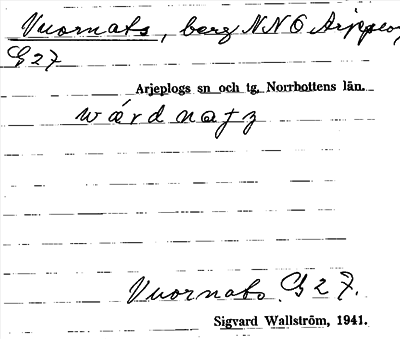 Vuornats, berg NNO Arjeplog
G 27
Arjeplogs sn och tg. Norrbottens län.
wárdnatz
Vuornats. G 27.
Sigvard Wallström, 1941.